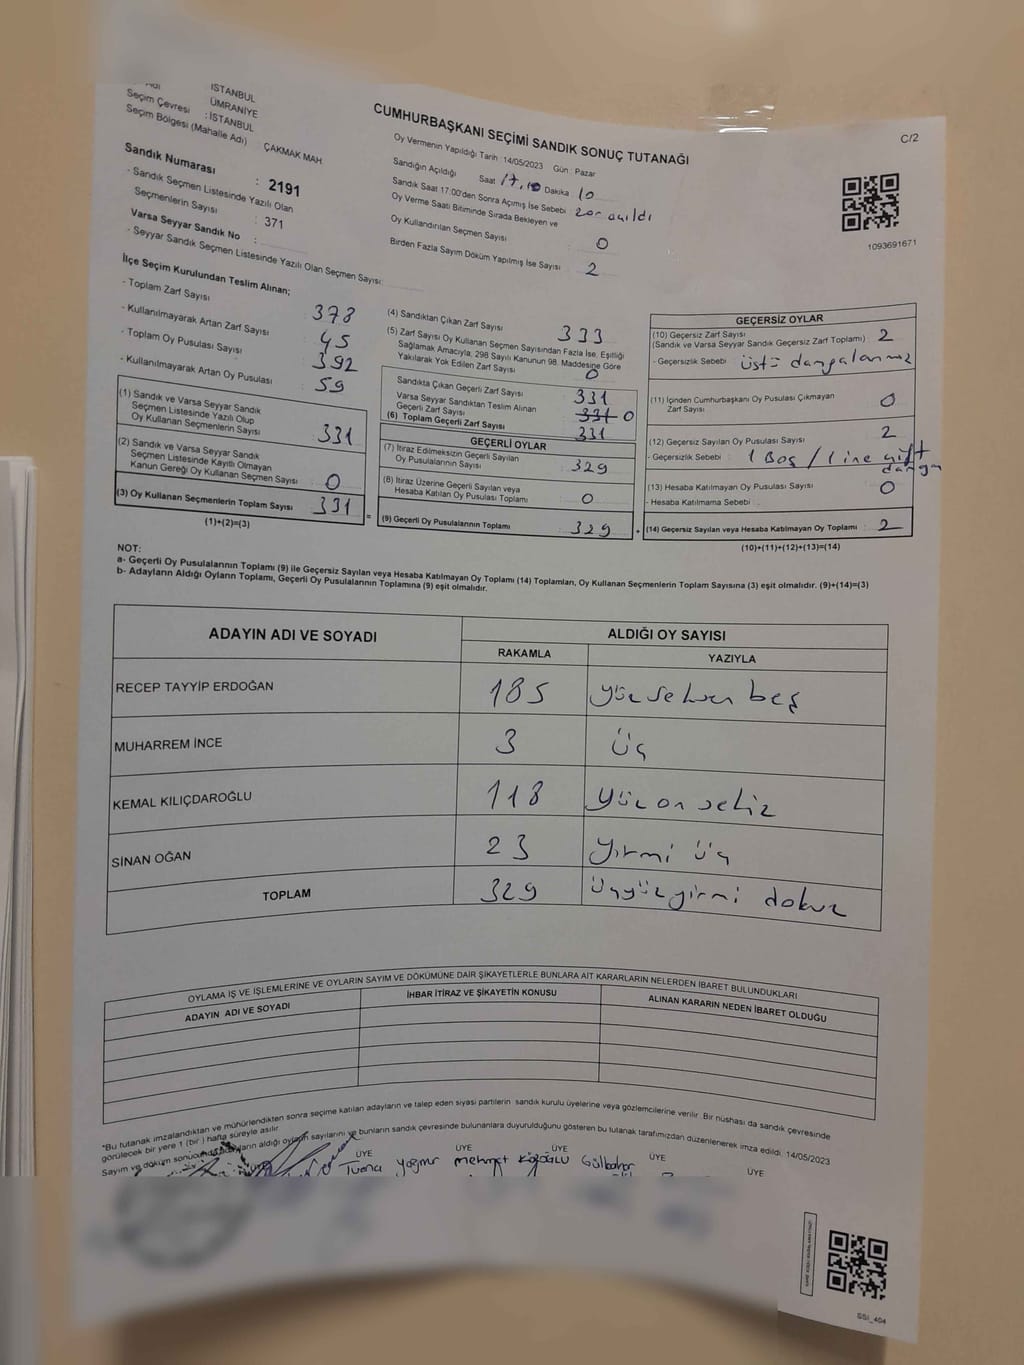 İSTANBUL
ÜMRANİYE
Seçim Çevresi : İSTANBUL
Seçim Bölgesi (Mahalle Adı) ÇAKMAK MAH.
CUMHURBAŞKANI SEÇİMİ SANDIK SONUÇ TUTANAĞI
C/2
Oy Vermenin Yapıldığı Tarih : 14/05/2023 Gün : Pazar
Sandığın Açıldığı Saat 17,10 Dakika 10
Sandık Saat 17.00'den Sonra Açımış İse Sebebi : zor açıldı
Oy Verme Saati Bitiminde Sırada Bekleyen ve
Oy Kullandırılan Seçmen Sayısı : 0
Birden Fazla Sayım Döküm Yapılmış İse Sayısı 2
1093691671
Sandık Numarası : 2191
- Sandık Seçmen Listesinde Yazılı Olan
Seçmenlerin Sayısı : 371
Varsa Seyyar Sandık No :
- Seyyar Sandık Seçmen Listesinde Yazılı Olan Seçmen Sayısı:
İlçe Seçim Kurulundan Teslim Alınan;
- Toplam Zarf Sayısı 378
- Kullanılmayarak Artan Zarf Sayısı 45
- Toplam Oy Pusulası Sayısı 392
- Kullanılmayarak Artan Oy Pusulası 59
(1) Sandık ve Varsa Seyyar Sandık
Seçmen Listesinde Yazılı Olup
Oy Kullanan Seçmenlerin Sayısı : 331
(2) Sandık ve Varsa Seyyar Sandık
Seçmen Listesinde Kayıtlı Olmayan
Kanun Gereği Oy Kullanan Seçmen Sayısı : 0
(3) Oy Kullanan Seçmenlerin Toplam Sayısı 331
(1)+(2)=(3)
(4) Sandıktan Çıkan Zarf Sayısı : 333
(5) Zarf Sayısı Oy Kullanan Seçmen Sayısından Fazla İse, Eşitliği
Sağlamak Amacıyla; 298 Sayılı Kanunun 98. Maddesine Göre
Yakılarak Yok Edilen Zarf Sayısı : 0
Sandıkta Çıkan Geçerli Zarf Sayısı : 331
Varsa Seyyar Sandıktan Teslim Alınan
Geçerli Zarf Sayısı : 331 0
(6) Toplam Geçerli Zarf Sayısı : 331
GEÇERLİ OYLAR
(7) İtiraz Edilmeksizin Geçerli Sayılan
Oy Pusulalarının Sayısı : 329
(8) İtiraz Üzerine Geçerli Sayılan veya
Hesaba Katılan Oy Pusulası Toplamı : 0
= (9) Geçerli Oy Pusulalarının Toplamı : 329
GEÇERSİZ OYLAR
(10) Geçersiz Zarf Sayısı : 2
(Sandık ve Varsa Seyyar Sandık Geçersiz Zarf Toplamı)
- Geçersizlik Sebebi : üstü damgalanmız
(11) İçinden Cumhurbaşkanı Oy Pusulası Çıkmayan
Zarf Sayısı : 0
(12) Geçersiz Sayılan Oy Pusulası Sayısı : 2
- Geçersizlik Sebebi : 1 Boş / 1 ine çift
damga
(13) Hesaba Katılmayan Oy Pusulası Sayısı : 0
- Hesaba Katılmama Sebebi :
+ (14) Geçersiz Sayılan veya Hesaba Katılmayan Oy Toplamı : 2
(10)+(11)+(12)+(13)=(14)
NOT:
a- Geçerli Oy Pusulalarının Toplamı (9) ile Geçersiz Sayılan veya Hesaba Katılmayan Oy Toplamı (14) Toplamları, Oy Kullanan Seçmenlerin Toplam Sayısına (3) eşit olmalıdır. (9)+(14)=(3)
b- Adayların Aldığı Oyların Toplamı, Geçerli Oy Pusulalarının Toplamına (9) eşit olmalıdır.
ADAYIN ADI VE SOYADI
ALDIĞI OY SAYISI
RAKAMLA YAZIYLA
RECEP TAYYİP ERDOĞAN 185 yüzseksen beş
MUHARREM İNCE 3 üç
KEMAL KILIÇDAROĞLU 118 yüz on sekiz
SİNAN OĞAN 23 yirmi üç
TOPLAM 329 üçyüzyirmi dokuz
OYLAMA İŞ VE İŞLEMLERİNE VE OYLARIN SAYIM VE DÖKÜMÜNE DAİR ŞİKAYETLERLE BUNLARA AİT KARARLARIN NELERDEN İBARET BULUNDUKLARI
ADAYIN ADI VE SOYADI İHBAR İTİRAZ VE ŞİKAYETİN KONUSU ALINAN KARARIN NEDEN İBARET OLDUĞU
*Bu tutanak imzalandıktan ve mühürlendikten sonra seçime katılan adayların ve talep eden siyasi partilerin sandık kurulu üyelerine veya gözlemcilerine verilir. Bir nüshası da sandık çevresinde
görülecek bir yere 1 (bir) hafta süreyle asılır.
Sayım ve döküm sonucunda adayların aldığı oyların sayılarını ve bunların sandık çevresinde bulunanlara duyurulduğunu gösteren bu tutanak tarafımızdan düzenlenerek imza edildi. 14/05/2023
ÜYE ÜYE ÜYE ÜYE ÜYE
Tuana yağmur mehmet KÖROĞLU Gülbahar
SSI_404